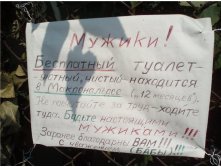 Мужики!
Бесплатный туалет-
уютный, чистый-находится
в Макдональдсе (≈12 месяцев).
Не почитайте за труд-ходите
туда. Будьте настоящими
МУЖИКАМИ!!!
Заранее благодарны ВАМ!!!
С уважением БАБЫ!!!